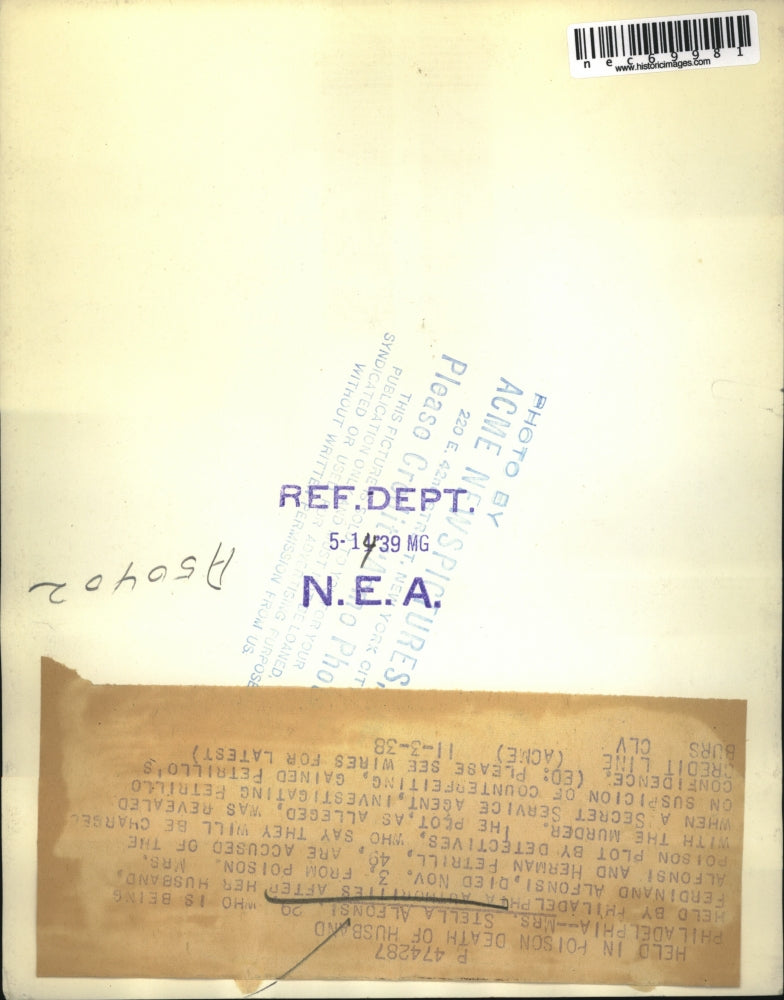 nec69981
www.historicimages.com
PHOTO BY
ACME NEWSPICTURES,
220 E. 42nd STREET, NEW YORK CIT
Please Credit "Acme Pho
THIS PICTURE IS SOLD TO YOU FOR YOUR
PUBLICATION ONLY AND MUST NOT BE LOANED,
SYNDICATED OR USED FOR ADVERTISING PURPOSE
WITHOUT WRITTEN PERMISSION FROM US.
REF.DEPT.
5-14 39 MG
N.E.A.
A50402
P 474287
HELD IN POISON DEATH OF HUSBAND
PHILADELPHIA--MRS. STELLA ALFONSI, 29 WHO IS BEING
HELD BY PHILADELPHIA AUTHORITIES AFTER HER HUSBAND,
FERDINAND ALFONSI, DIED NOV. 3, FROM POISON. MRS.
ALFONSI AND HERMAN PETRILL, 40, ARE ACCUSED OF THE
POISON PLOT BY DETECTIVES, WHO SAY THEY WILL BE CHARGED
WITH THE MURDER. THE PLOT, AS ALLEGED, WAS REVEALED
WHEN A SECRET SERVICE AGENT, INVESTIGATING PETRILLO
ON SUSPICION OF COUNTERFEITING, GAINED PETRILLO'S
CONFIDENCE. (ED: PLEASE SEE WIRES FOR LATEST)
CREDIT LINE (ACME) 11-3-38
BURS CLV